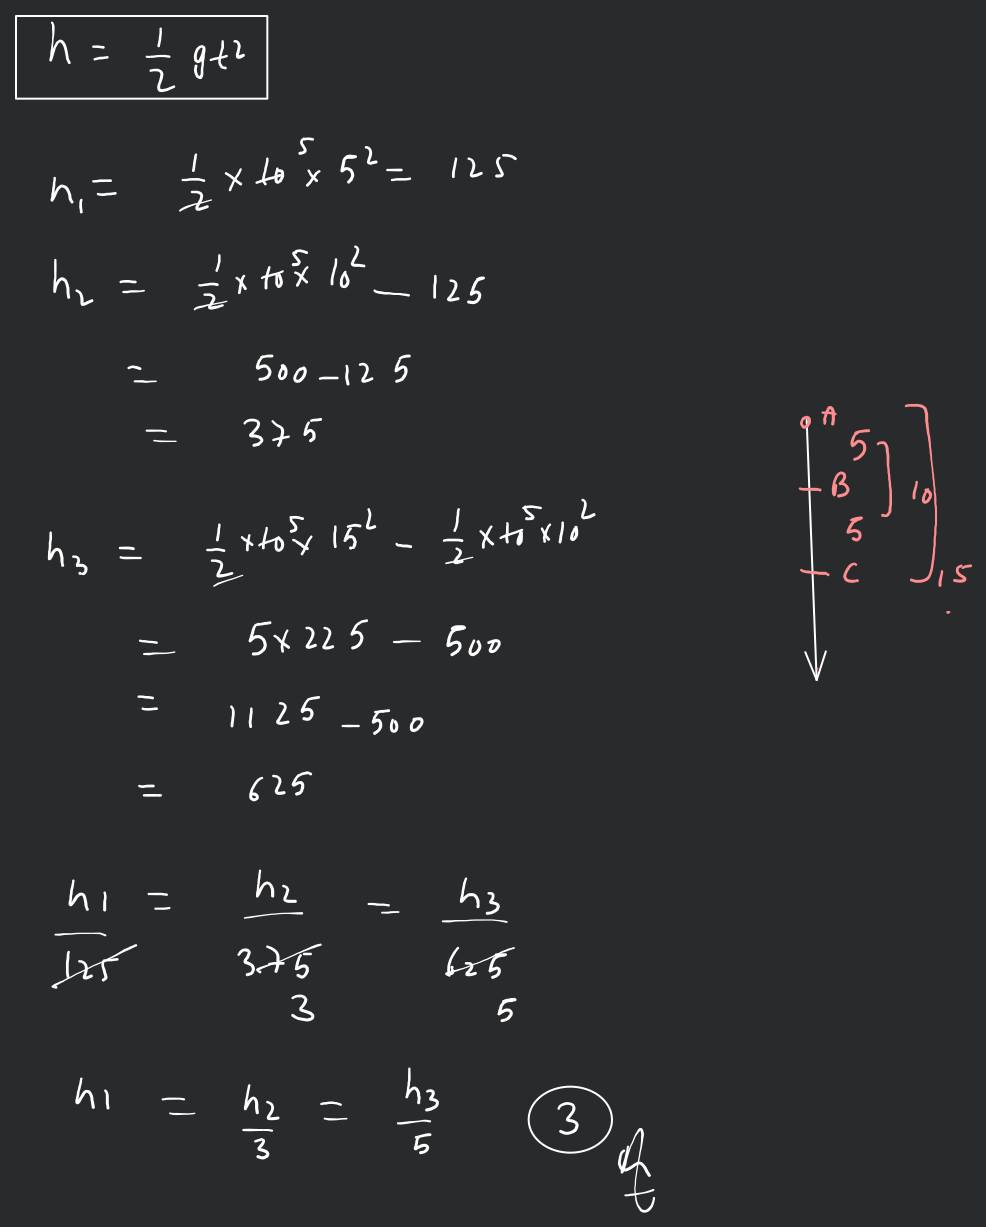 h = 1/2 gt²
h₁ = 1/2 × 10 5 × 5² = 125
h₂ = 1/2 × 10 5 × 10² – 125
= 500 – 125
= 375
h₃ = 1/2 × 10 5 × 15² – 1/2 × 10 5 × 10²
= 5×225 – 500
= 1125 – 500
= 625
A
5
B
10
5
C
15
h1/125 = h2/375 = h3/625
3 5
h1 = h2/3 = h3/5 3